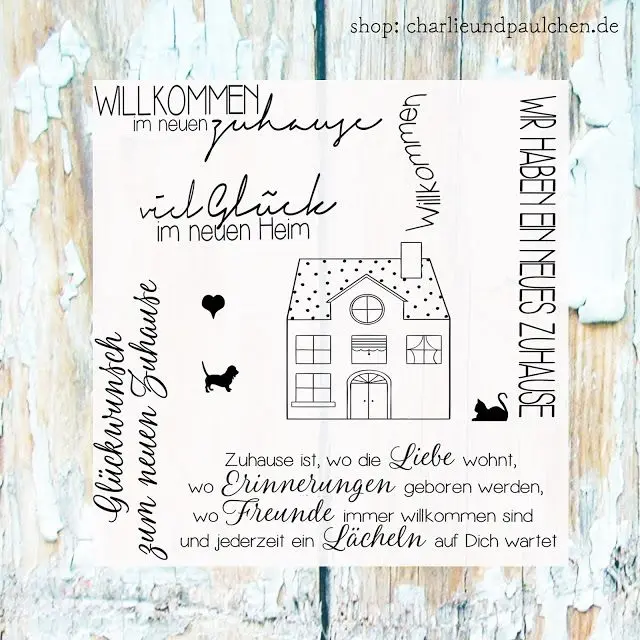 shop: charlieundpaulchen.de
WILLKOMMEN
im neuen zuhause
Willkommen
WIR HABEN EIN NEUES ZUHAUSE
viel Glück
im neuen Heim
Glückwunsch
zum neuen Zuhause
Zuhause ist, wo die Liebe wohnt,
wo Erinnerungen geboren werden,
wo Freunde immer willkommen sind
und jederzeit ein Lächeln auf Dich wartet